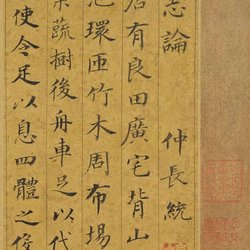 志論 仲長統
居有良田廣宅背山
池環匝竹木周布場
蔬樹後舟車足以代
使令足以息四體之役